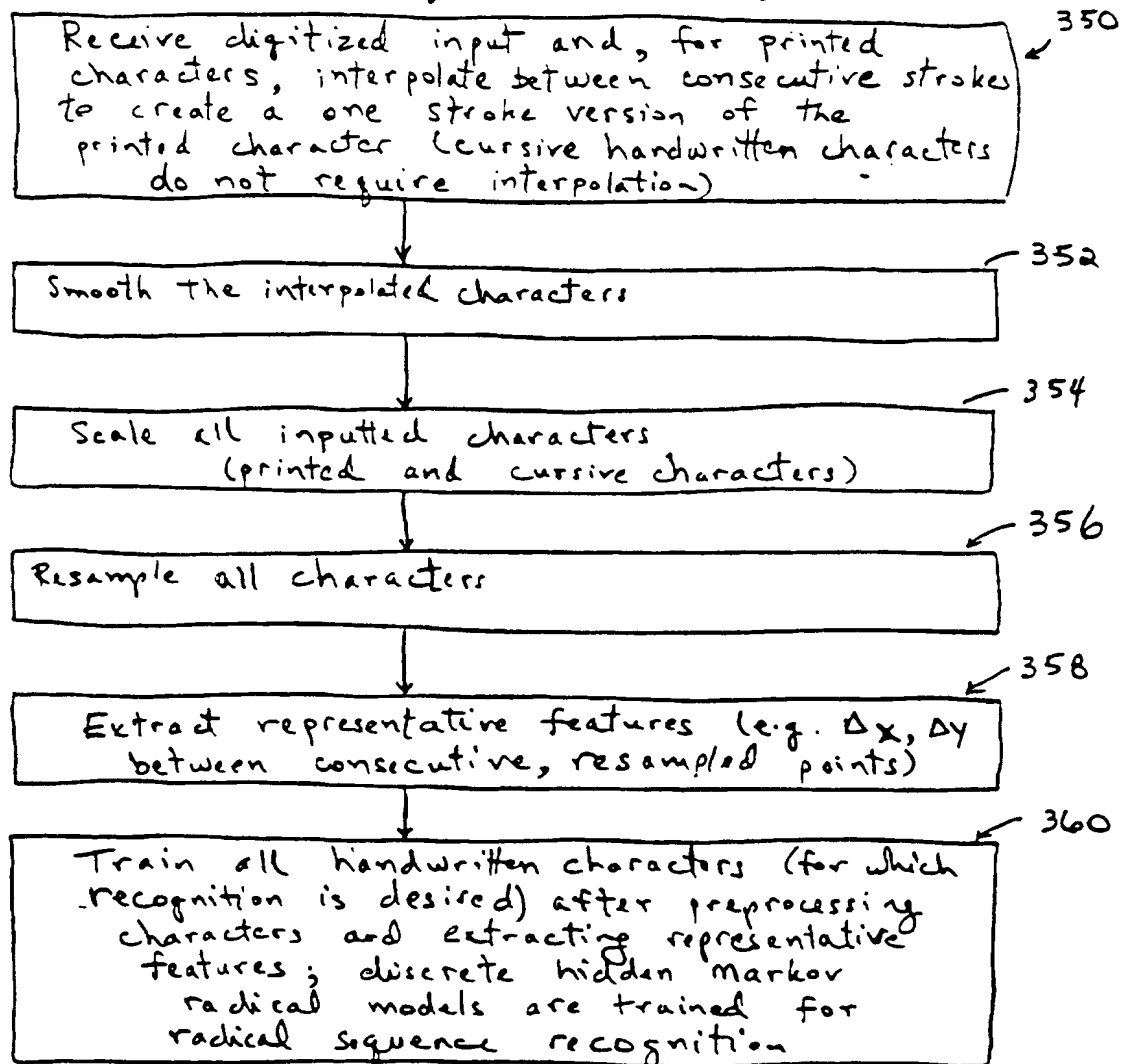 350
Receive digitized input and, for printed
characters, interpolate between consecutive strokes
to create a one stroke version of the
printed character (cursive handwritten characters
do not require interpolation)
352
Smooth the interpolated characters
354
Scale all inputted characters
(printed and cursive characters)
356
Resample all characters
358
Extract representative features (e.g. Δx, Δy
between consecutive, resampled points)
360
Train all handwritten characters (for which
recognition is desired) after preprocessing
characters and extracting representative
features; discrete hidden Markov
radical models are trained for
radical sequence recognition